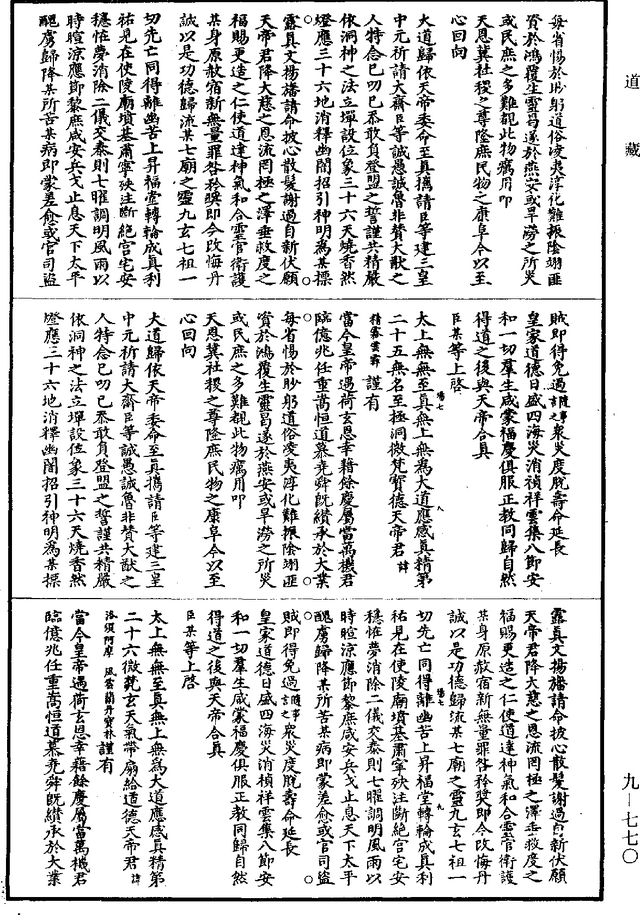 道藏
每省惕於眇躬道俗淩夷淳化難振陰翊匪
賚於鴻覆生靈曷遂於燕安或旱澇之所災
或民庶之多難覩此物癘用叩
天恩冀社稷之尊隆庶民物之康阜今以至
心回向
大道歸依天帝委命至真攜請臣等建三皇
中元祈請大齋臣等誠愚誠魯非贊大猷之
人特念已叨已忝敢負登盟之誓謹共精嚴
依洞神之法立壇設位象三十六天燒香然
燈應三十六地消釋幽闇招引神明為某標
露真文揚旛請命披心散髮謝過自新伏願
天帝君降大慈之恩流罔極之澤垂救度之
福賜更造之仁使道達神氣和合靈官衛護
某身原赦宿新無量罪咎矜獎即今改悔丹
誠以是功德歸流某七廟之靈九玄七祖一
切先亡同得離幽苦上昇福堂轉輪成真利
祐見在使陵廟墳墓肅寧殃注斷絕宮宅安
穩怪夢消除二儀交泰則七曜調明風雨以
時暄涼應節黎庶咸安兵戈止息天下太平
醜虜歸降某所苦某病即蒙差愈或官司盜
賊即得免過隨事言之眾災度脫壽命延長
皇家道德日盛四海災消禎祥雲集八節安
和一切羣生咸蒙福慶俱服正教同歸自然
得道之後與天帝合真
臣某等上啓
太上無無至真無上無為大道應感真精第
二十五無名至極洞微梵寶德天帝君諱
謹有
當今皇帝遇荷玄恩幸藉餘慶屬當萬機君
臨億兆任重嵩恒道慕堯舜既纘承於大業
每省惕於眇躬道俗淩夷淳化難振陰翊匪
賚於鴻覆生靈曷遂於燕安或旱澇之所災
或民庶之多難覩此物癘用叩
天恩冀社稷之尊隆庶民物之康阜今以至
心回向
大道歸依天帝委命至真攜請臣等建三皇
中元祈請大齋臣等誠愚誠魯非贊大猷之
人特念已叨已忝敢負登盟之誓謹共精嚴
依洞神之法立壇設位象三十六天燒香然
燈應三十六地消釋幽闇招引神明為某標
露真文揚旛請命披心散髮謝過自新伏願
天帝君降大慈之恩流罔極之澤垂救度之
福賜更造之仁使道達神氣和合靈官衛護
某身原赦宿新無量罪咎矜獎即今改悔丹
誠以是功德歸流某七廟之靈九玄七祖一
切先亡同得離幽苦上昇福堂轉輪成真利
祐見在使陵廟墳墓肅寧殃注斷絕宮宅安
穩怪夢消除二儀交泰則七曜調明風雨以
時暄涼應節黎庶咸安兵戈止息天下太平
醜虜歸降某所苦某病即蒙差愈或官司盜
賊即得免過隨事言之眾災度脫壽命延長
皇家道德日盛四海災消禎祥雲集八節安
和一切羣生咸蒙福慶俱服正教同歸自然
得道之後與天帝合真
臣某等上啓
太上無無至真無上無為大道應感真精第
二十六微梵玄天氣帶扇給道德天帝君諱
謹有
當今皇帝遇荷玄恩幸藉餘慶屬當萬機君
臨億兆任重嵩恒道慕堯舜既纘承於大業
九—七七〇